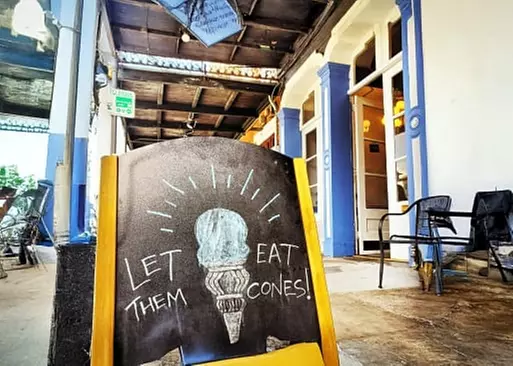 LET
THEM
EAT
CONES!